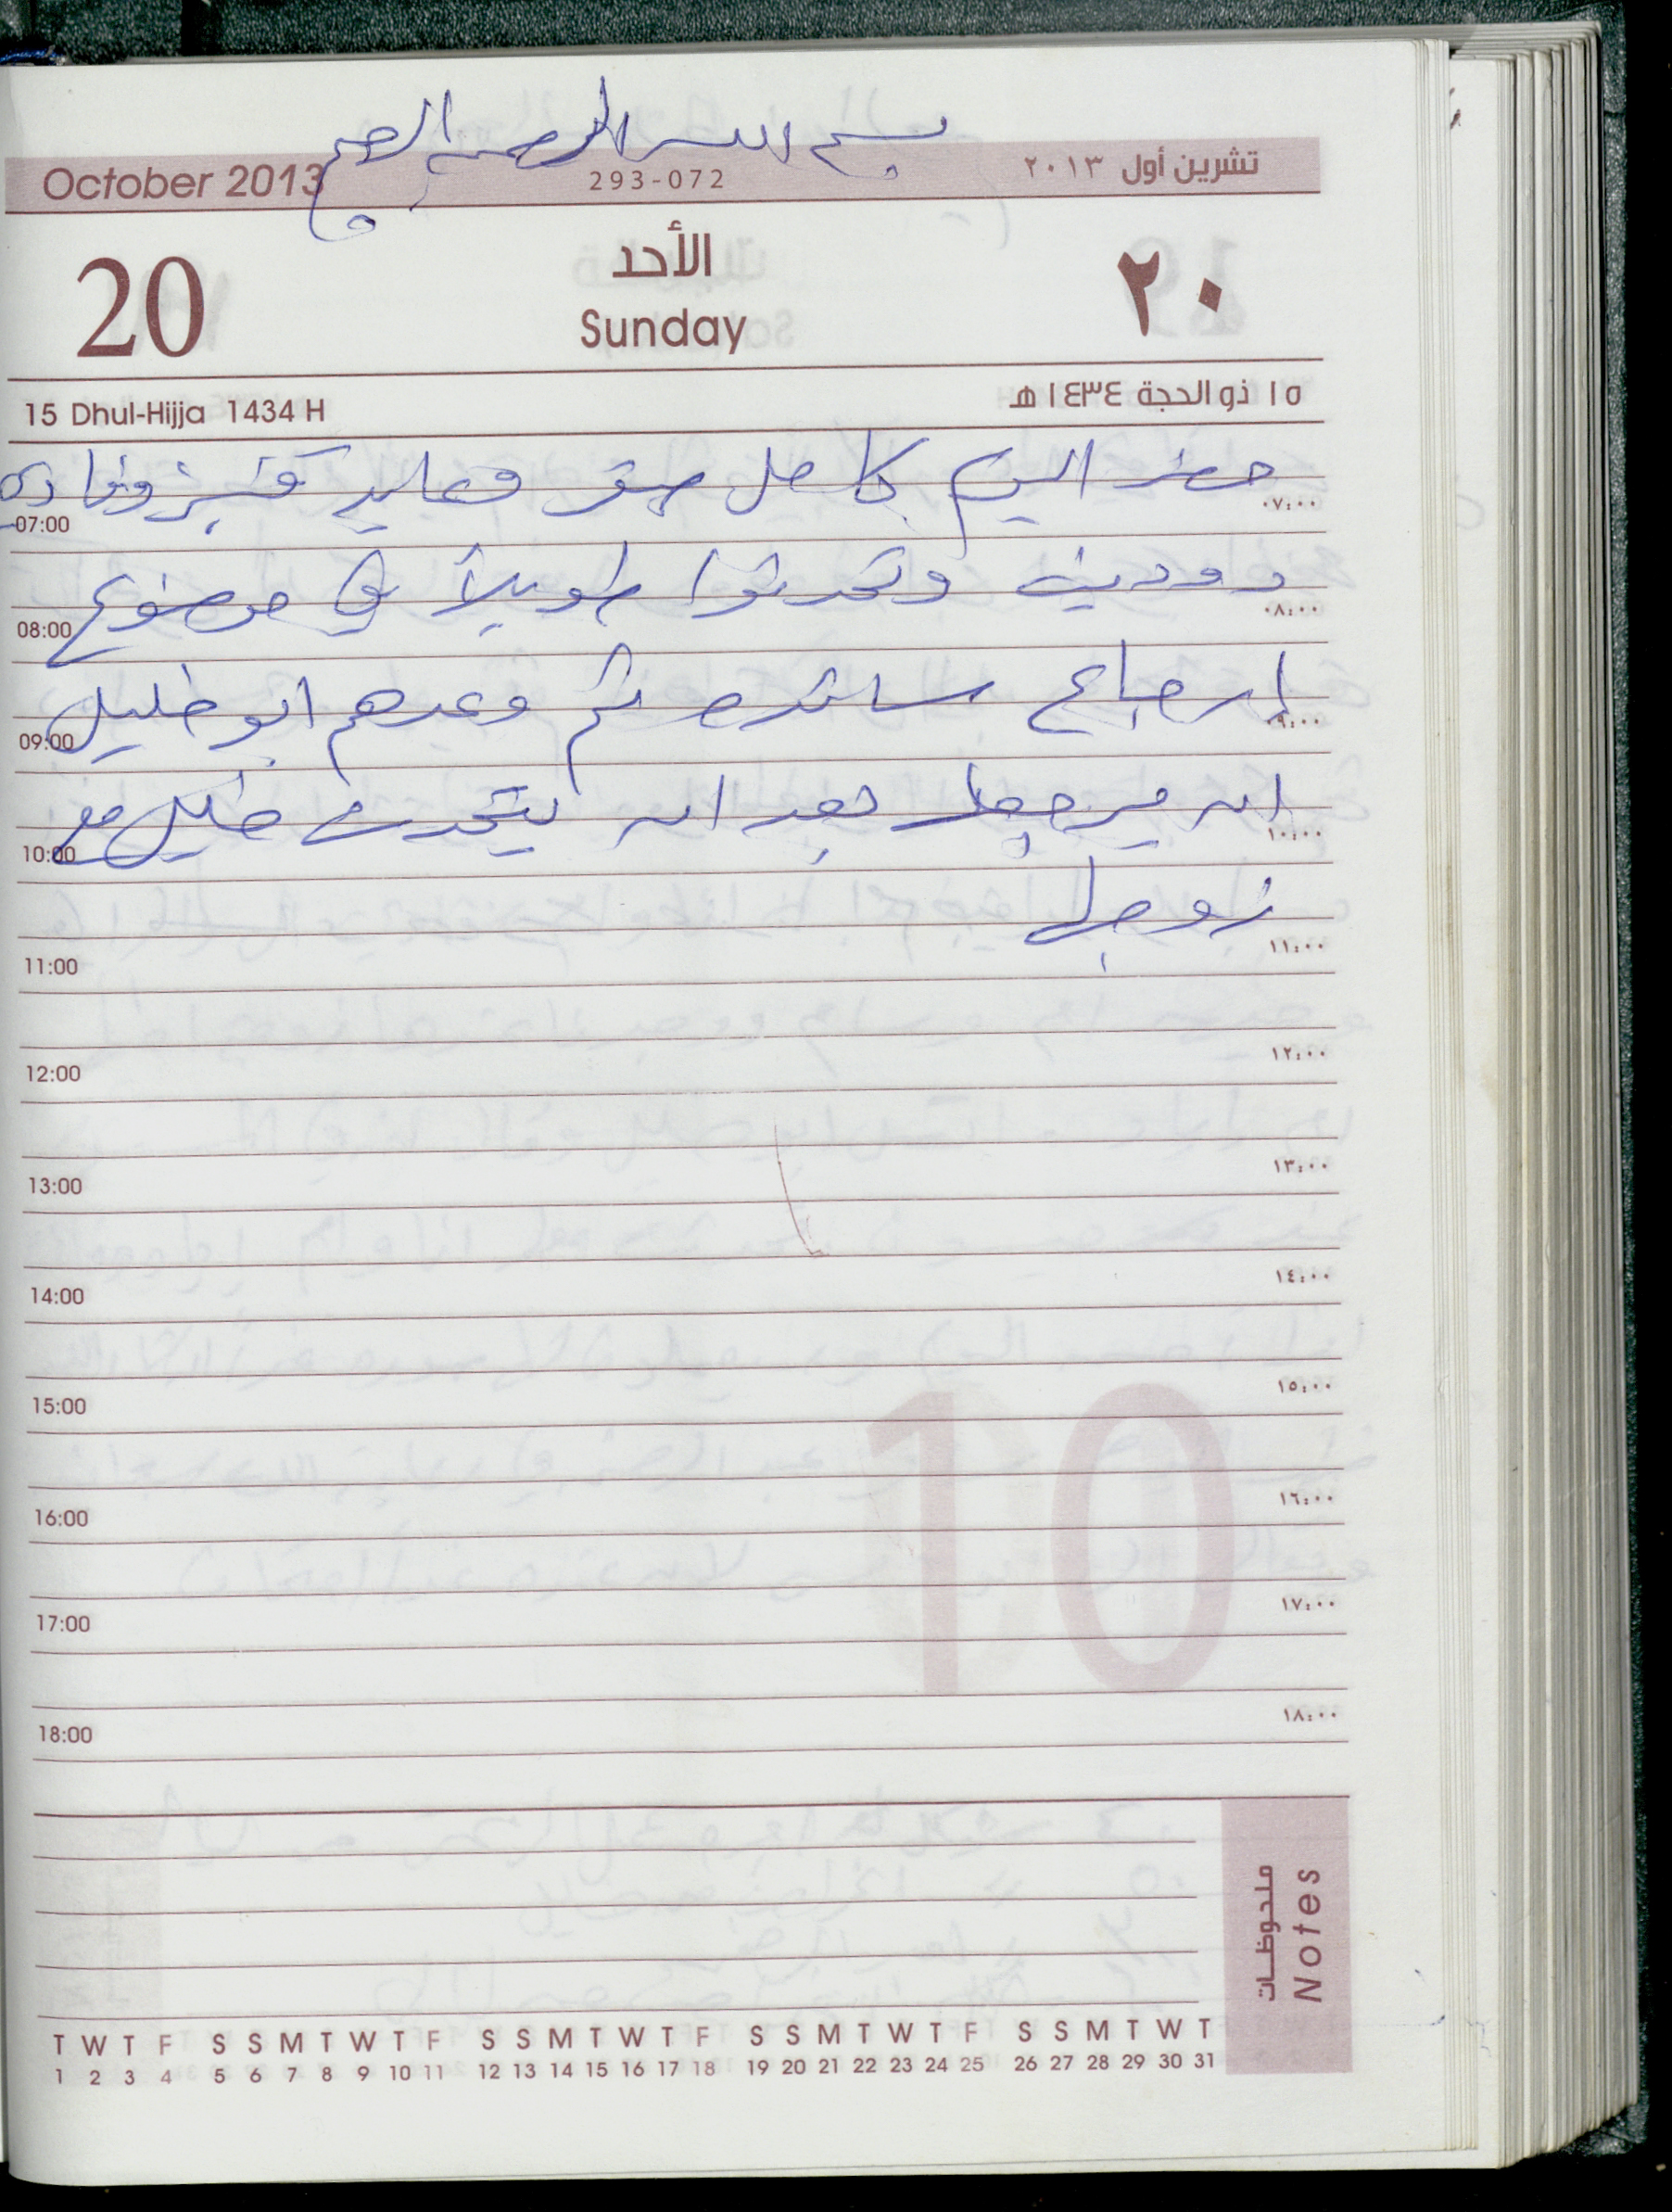 بسم الله الرحمن الرحيم
October 2013 293-072 تشرين أول ٢٠١٣
20 الأحد ٢٠
Sunday
15 Dhul-Hijja 1434 H ١٥ ذو الحجة ١٤٣٤ هـ
حضر اليوم كامل صقر
07:00 ٠٧:٠٠
وتحدثوا طويلاً في موضوع
08:00 ٠٨:٠٠
إرجاع ثم وعدهم ابو خليل
09:00 ٠٩:٠٠
ان يرجعها بعد ان يتحدث خليل مع
10:00 ١٠:٠٠
زوجها
11:00 ١١:٠٠
12:00 ١٢:٠٠
13:00 ١٣:٠٠
14:00 ١٤:٠٠
15:00 ١٥:٠٠
16:00 ١٦:٠٠
17:00 ١٧:٠٠
18:00 ١٨:٠٠
10
ملحوظات
Notes
T W T F S S M T W T F S S M T W T F S S M T W T F S S M T W T
1 2 3 4 5 6 7 8 9 10 11 12 13 14 15 16 17 18 19 20 21 22 23 24 25 26 27 28 29 30 31